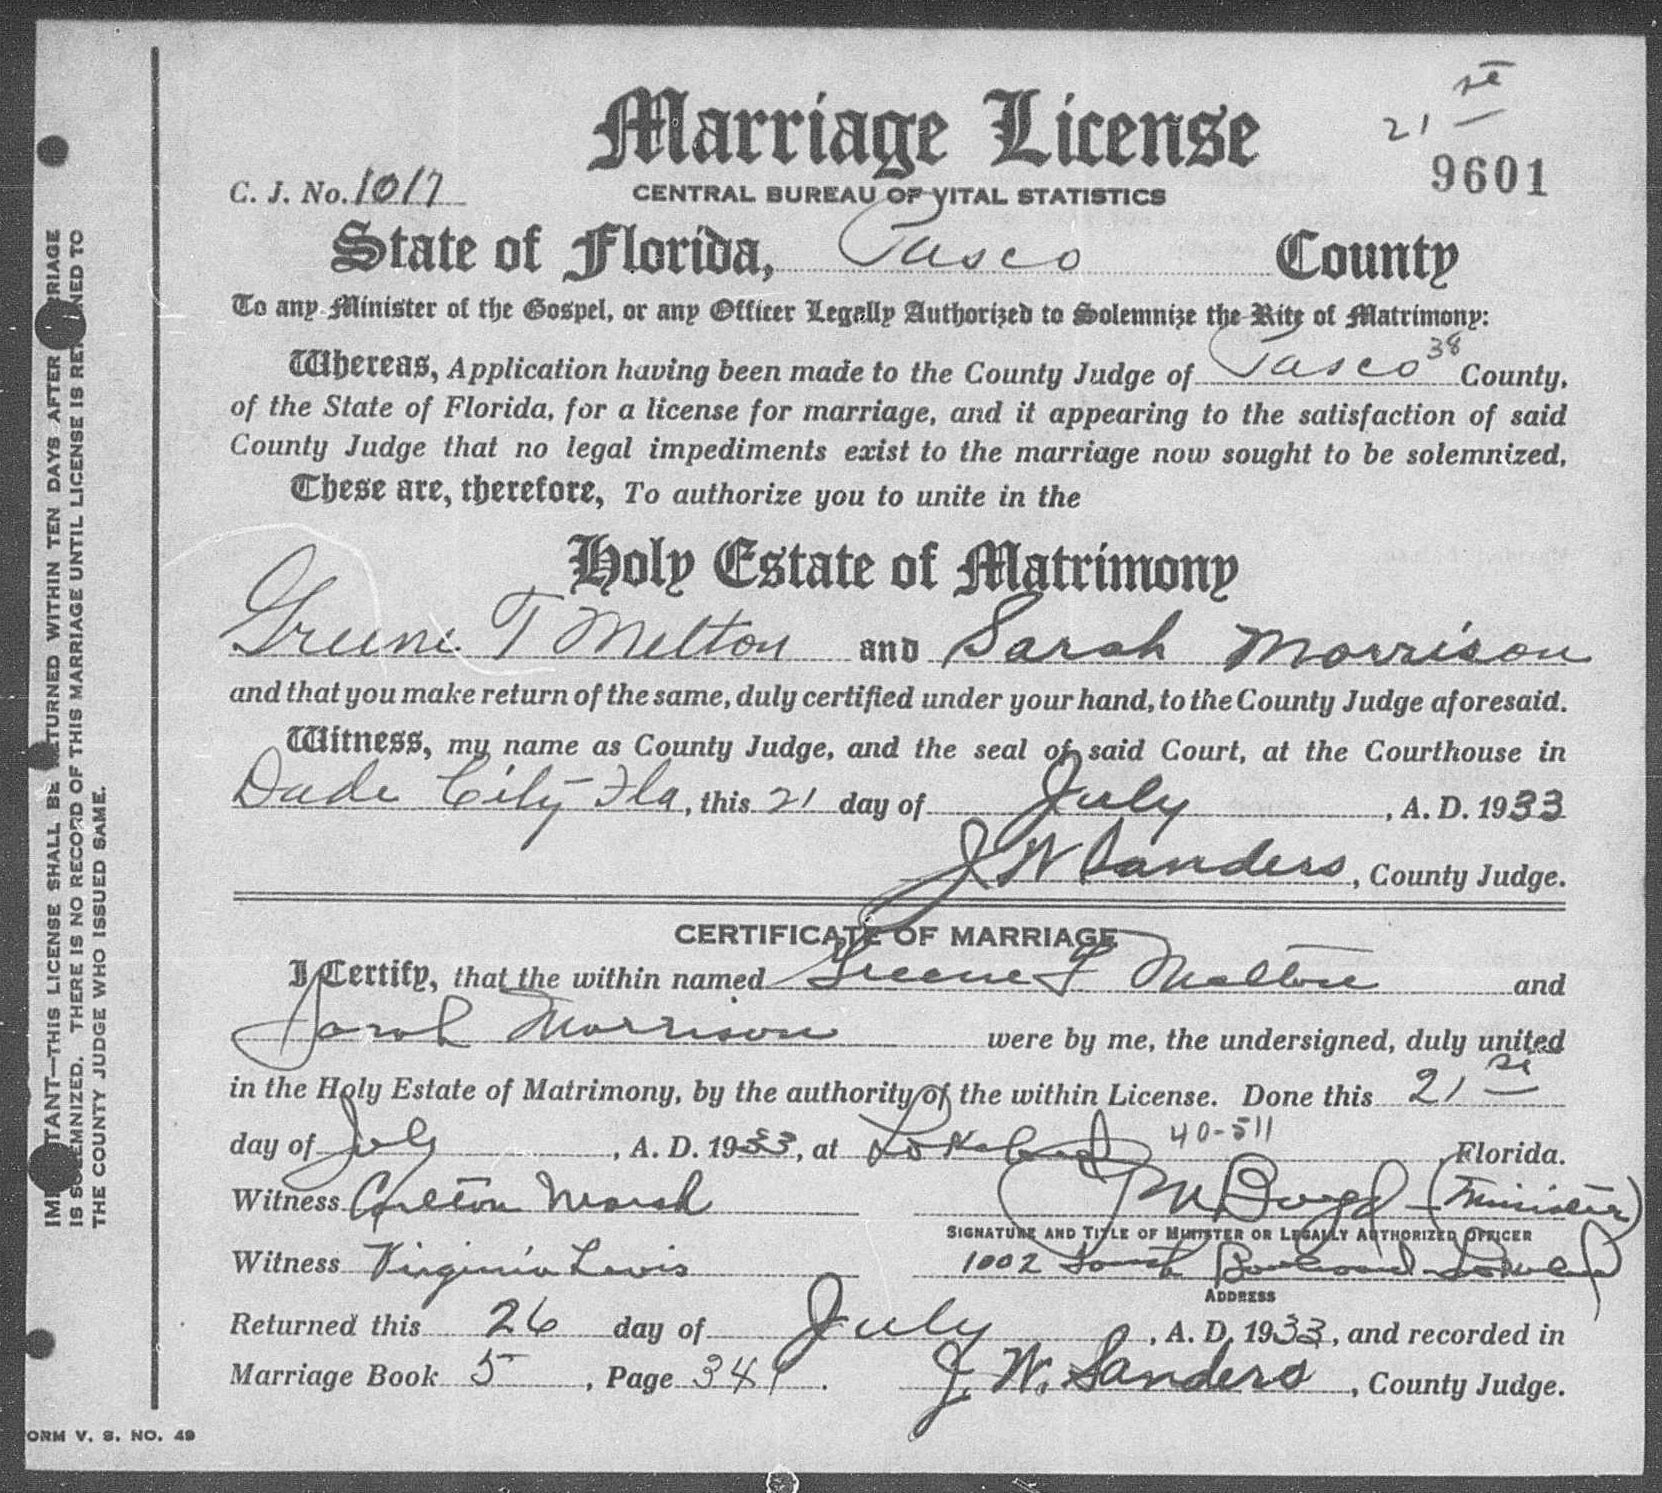 21 st
Marriage License
9601
C. J. No. 1017
CENTRAL BUREAU OF VITAL STATISTICS
State of Florida, Pasco County
To any Minister of the Gospel, or any Officer Legally Authorized to Solemnize the Rite of Matrimony:
38
Whereas, Application having been made to the County Judge of Pasco County,
of the State of Florida, for a license for marriage, and it appearing to the satisfaction of said
County Judge that no legal impediments exist to the marriage now sought to be solemnized,
These are, therefore, To authorize you to unite in the
Holy Estate of Matrimony
Greene T Melton and Sarah Morrison
and that you make return of the same, duly certified under your hand, to the County Judge aforesaid.
Witness, my name as County Judge, and the seal of said Court, at the Courthouse in
Dade City Fla, this 21 day of July, A. D. 1933
J W Sanders, County Judge.
CERTIFICATE OF MARRIAGE
I Certify, that the within named Greene T Melton and
Sarah Morrison were by me, the undersigned, duly united
in the Holy Estate of Matrimony, by the authority of the within License. Done this 21 st
day of July, A. D. 1933, at Lakeland 40-511, Florida.
Witness Carlton Marsh
Boyd (Minister)
SIGNATURE AND TITLE OF MINISTER OR LEGALLY AUTHORIZED OFFICER
Witness Virginia Lewis
1002 South Boulevard Lakeland
ADDRESS
Returned this 26 day of July, A. D. 1933, and recorded in
Marriage Book 5, Page 341. J. W. Sanders, County Judge.
ORM V. S. NO. 49
IMP TANT—THIS LICENSE SHALL BE RETURNED WITHIN TEN DAYS AFTER RRIAGE
IS SOLEMNIZED. THERE IS NO RECORD OF THIS MARRIAGE UNTIL LICENSE IS RETURNED TO
THE COUNTY JUDGE WHO ISSUED SAME.